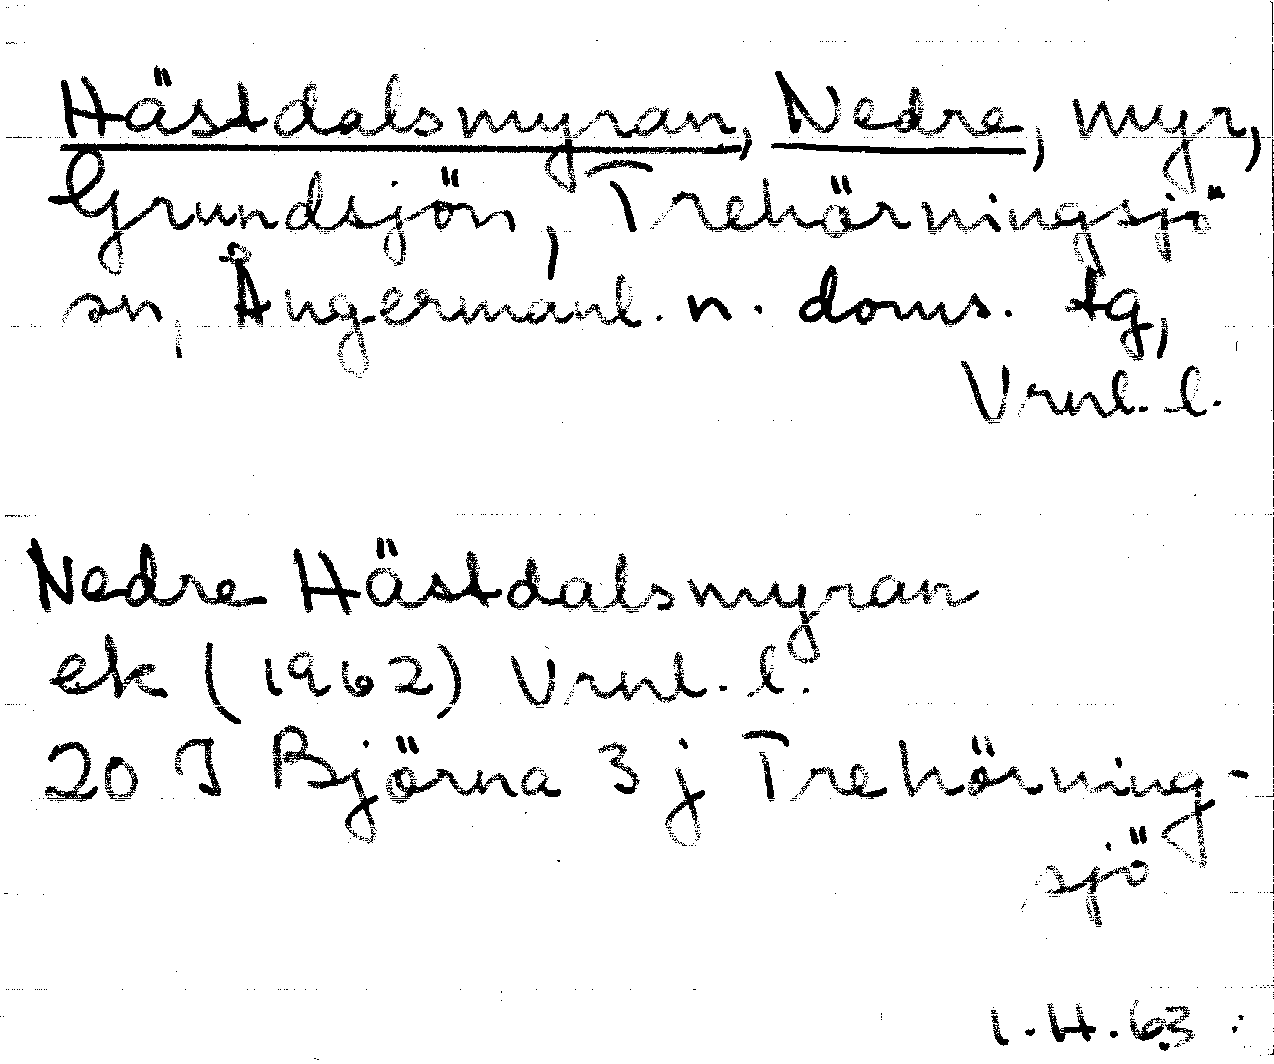 Hästdalsmyran, Nedre, myr,
Grundsjön, Trehörningsjö
sn, Ångermanl. n. doms. tg,
Vrnl. l.
Nedre Hästdalsmyran
ek (1962) Vrnl. l.
20 I Björna 3 j Trehörning-
sjö
I.H.63